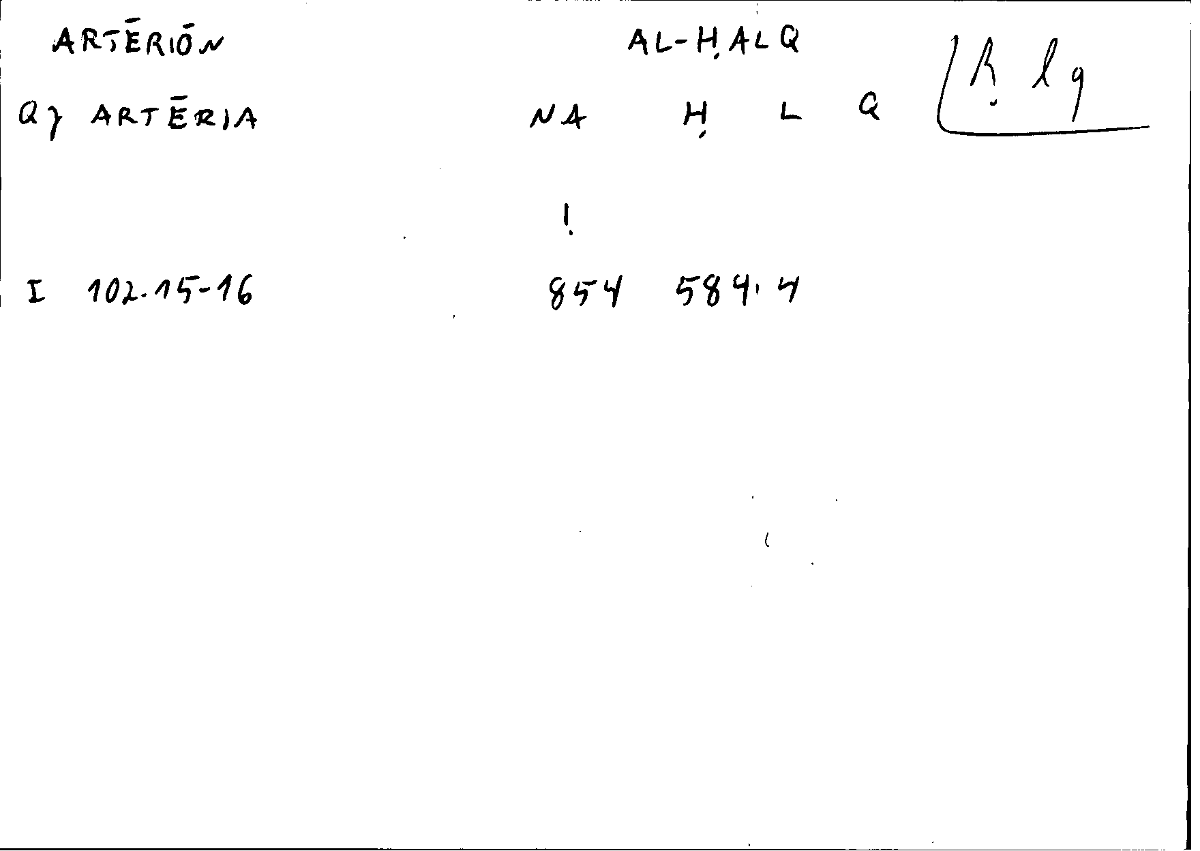 ARTĒRIŌN AL-ḤALQ
Qγ ARTĒRIA NA Ḥ L Q ḥlq
!
I 102.15-16 854 584.4